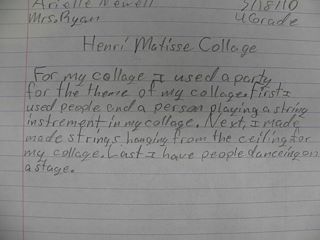 Arielle Newell 5/18/10
Mrs. Ryan 4 Grade
Henri Matisse Collage
For my collage I used a party
for the theme of my collage. first I
used people and a person playing a string
instrement in my collage. Next, I made
made strings hanging from the ceiling for
my collage. Last I have people danceing on
a stage.